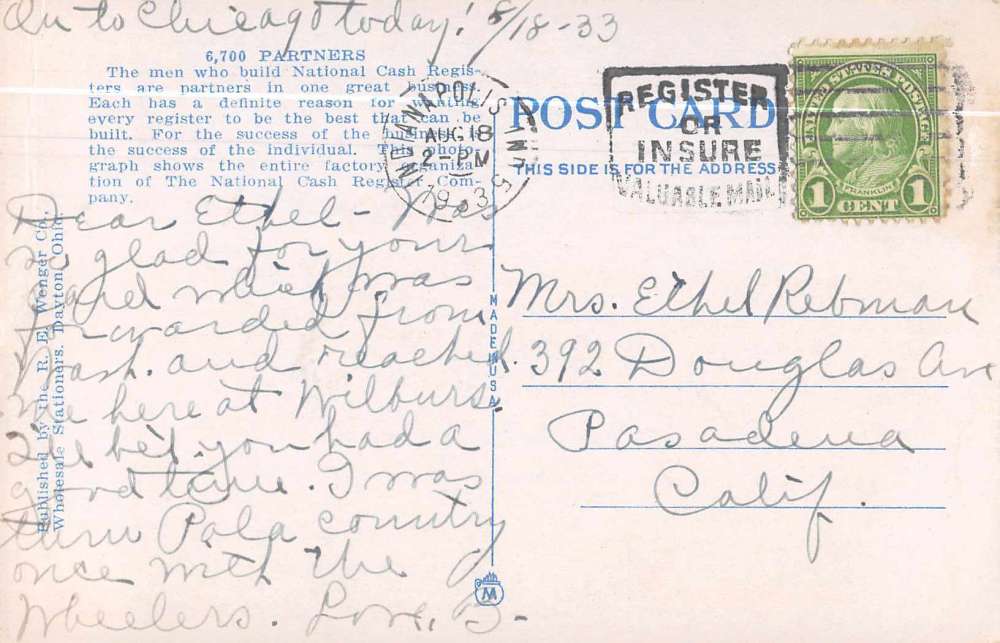 On to Chicago today! 8/18-33
6,700 PARTNERS
The men who build National Cash Regis-
ters are partners in one great business.
Each has a definite reason for wanting
every register to be the best that can be
built. For the success of the business is
the success of the individual. This photo-
graph shows the entire factory organiza-
tion of The National Cash Register Com-
pany.
INDIANAPOLIS IND.
AUG 18
2-PM
1933
POST CARD
THIS SIDE IS FOR THE ADDRESS
REGISTER
OR
INSURE
VALUABLE MAIL
UNITED STATES POSTAGE
FRANKLIN
1 CENT 1
Dear Ethel - Was
so glad for your
card which was
forwarded from
Wash. and reached
me here at Wilburs.
I'll bet you had a
good time. I was
thru Pala country
once with the
Wheelers. Love, B-
Published by the R. E. Wenger Co.,
Wholesale Stationers, Dayton, Ohio.
MADE IN USA
M
Mrs. Ethel Rebman
392 Douglas Ave
Pasadena
Calif.